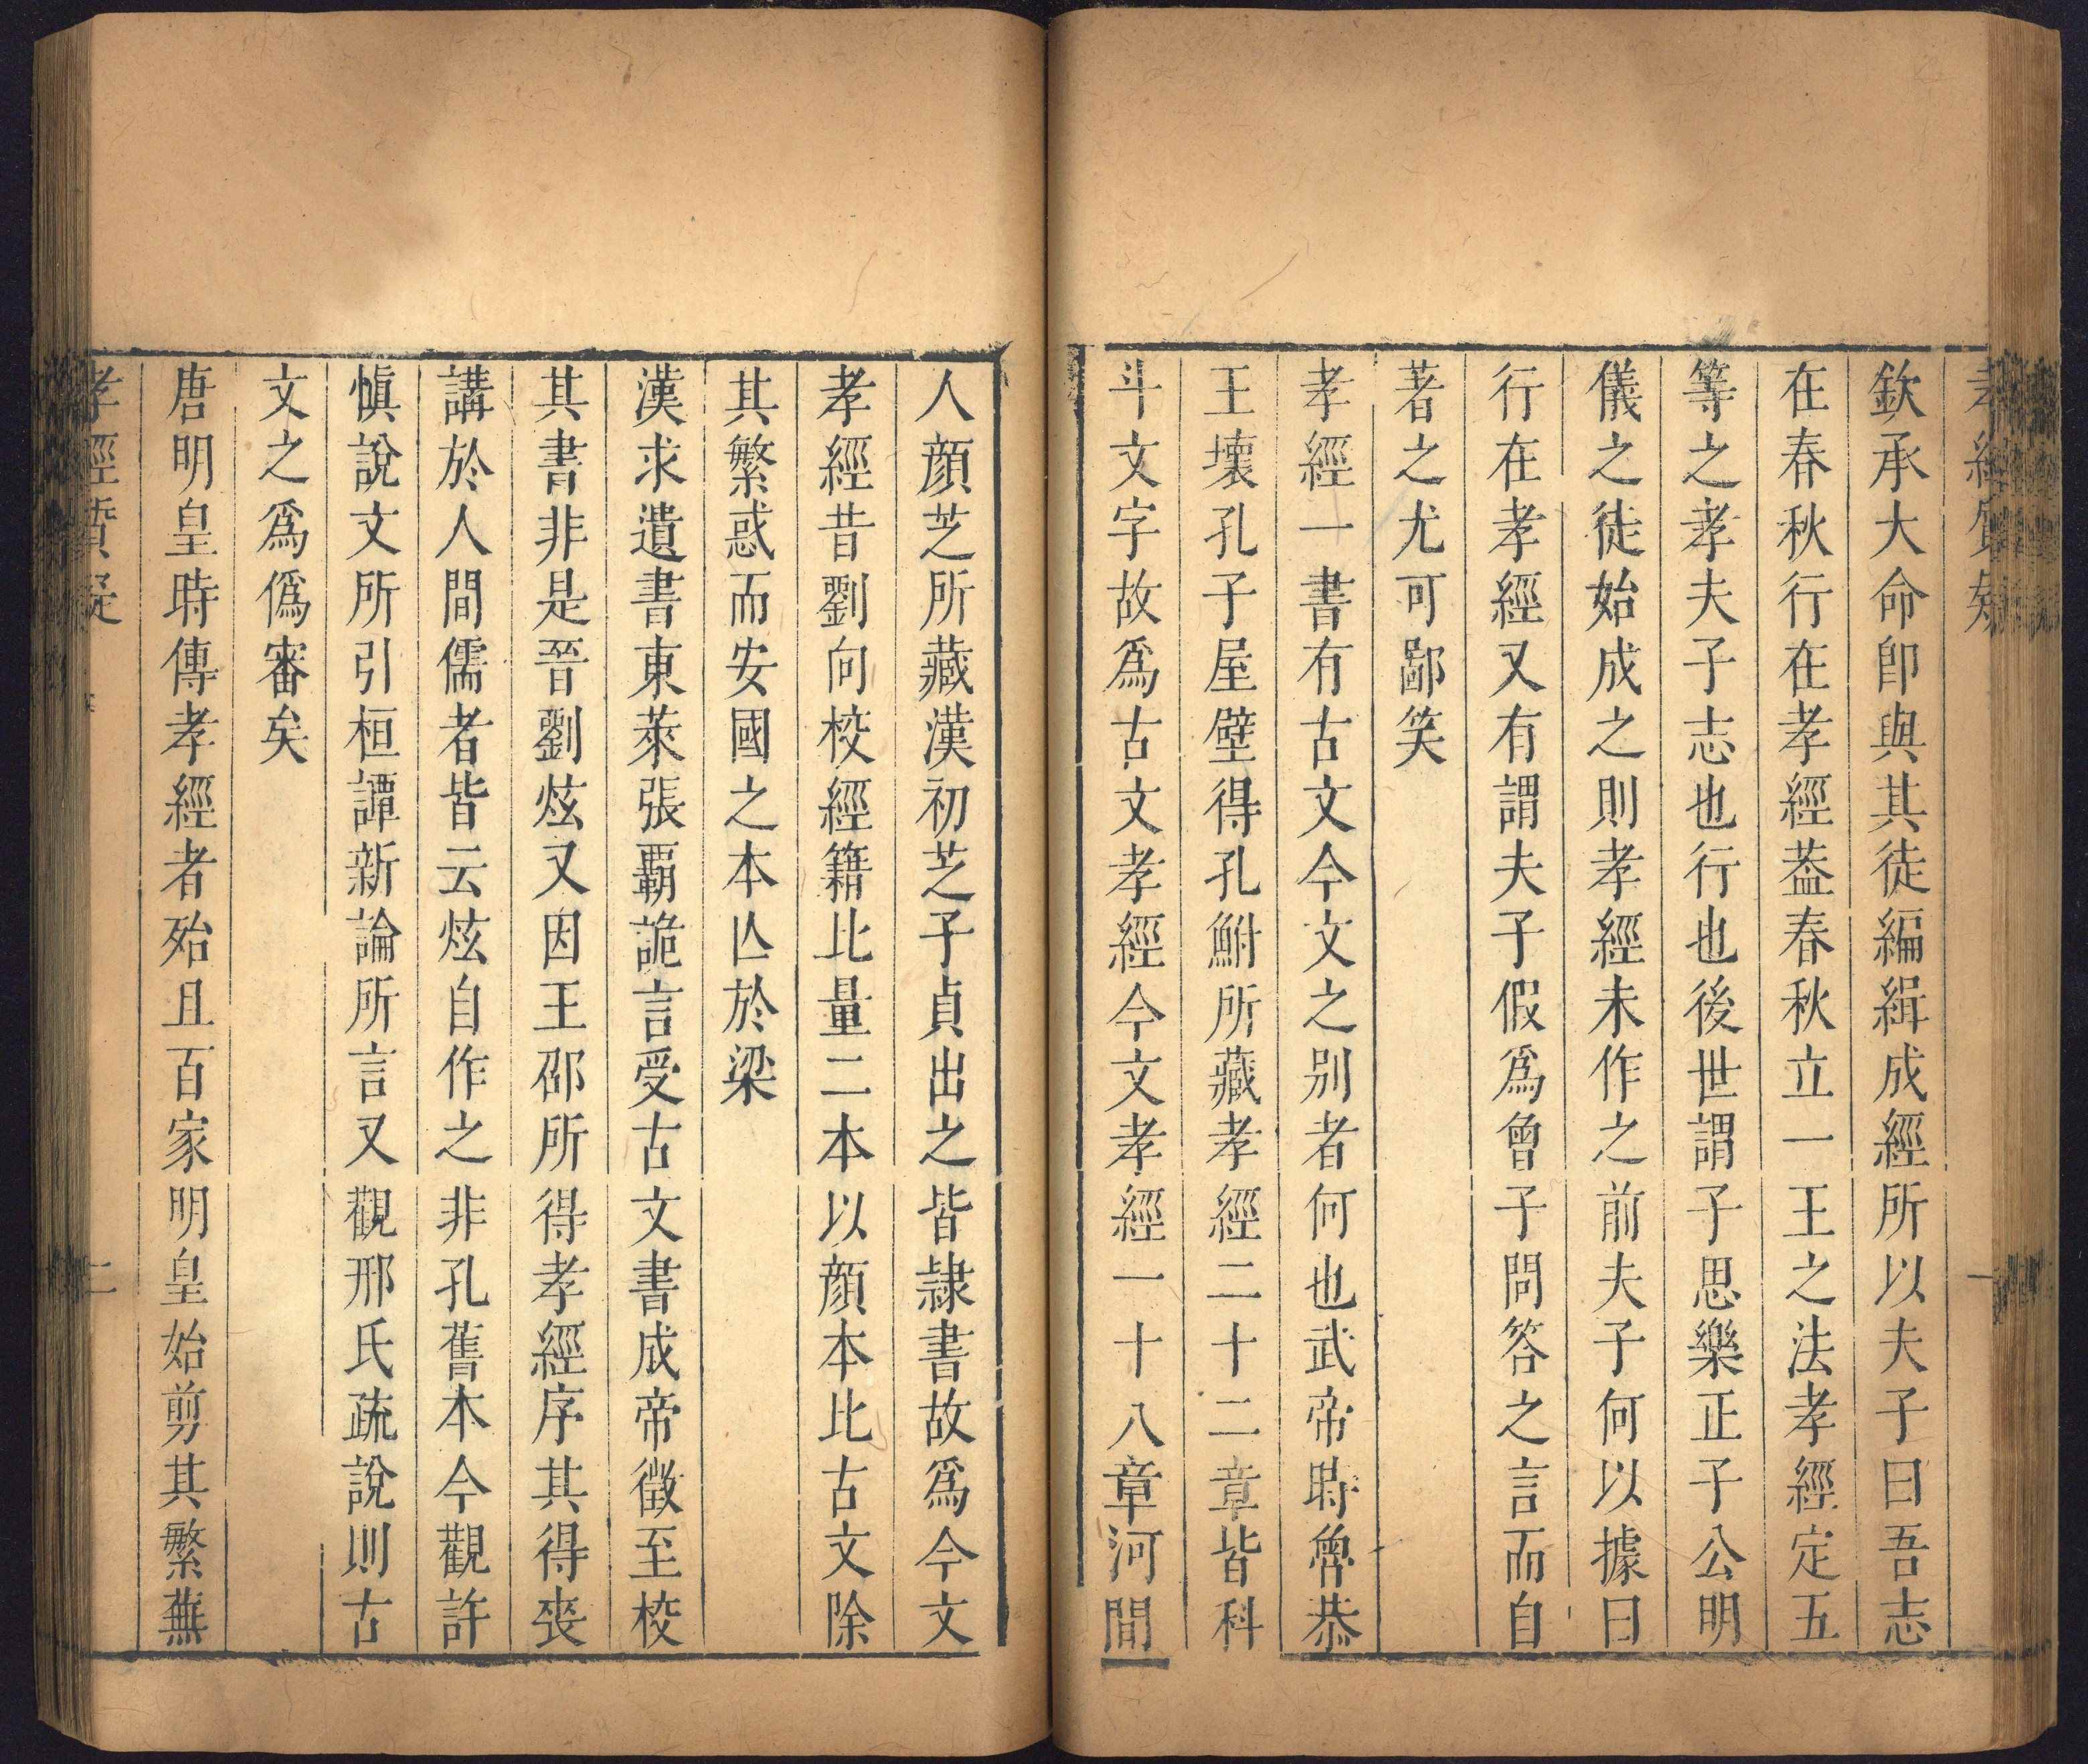 欽承大命卽與其徒編緝成經所以夫子曰吾志
在春秋行在孝經葢春秋立一王之法孝經定五
等之孝夫子志也行也後世謂子思樂正子公明
儀之徒始成之則孝經未作之前夫子何以據曰
行在孝經又有謂夫子假爲曾子問答之言而自
著之尤可鄙笑
孝經一書有古文今文之别者何也武帝時魯恭
王壞孔子屋壁得孔鮒所藏孝經二十二章皆科
斗文字故爲古文孝經今文孝經一十八章河間
人顔芝所藏漢初芝子貞出之皆隷書故爲今文
孝經昔劉向校經籍比量二本以顔本比古文除
其繁惑而安國之本亾於梁
漢求遺書東萊張覇詭言受古文書成帝徵至校
其書非是晉劉炫又因王邵所得孝經序其得喪
講於人間儒者皆云炫自作之非孔舊本今觀許
愼說文所引桓譚新論所言又觀邢氏疏說則古
文之爲僞審矣
唐明皇時傳孝經者殆且百家明皇始剪其繁蕪
孝經質疑
二